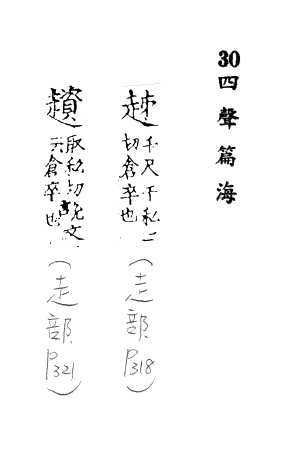 30四聲篇海
千尺千私二
切倉卒也
(走部
P318)
趲
取私切說文
云倉卒也
(走部
P321)